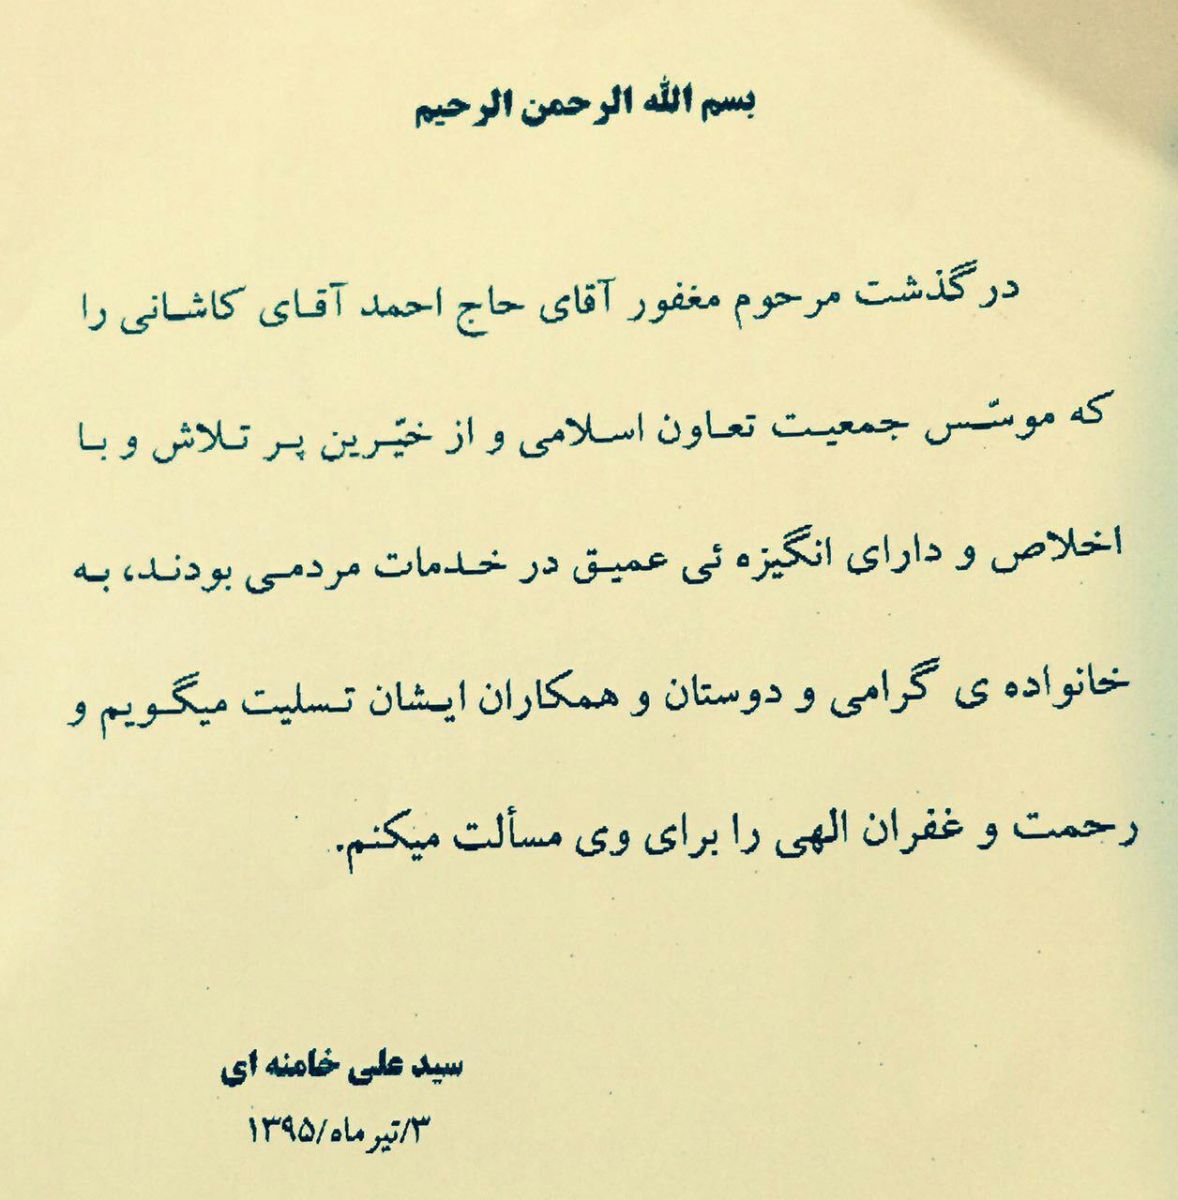 بسم الله الرحمن الرحیم
درگذشت مرحوم مغفور آقای حاج احمد آقای کاشانی را
که موسّس جمعیت تعاون اسلامی و از خیّرین پر تلاش و با
اخلاص و دارای انگیزه ئی عمیق در خدمات مردمی بودند، به
خانواده ی گرامی و دوستان و همکاران ایشان تسلیت میگویم و
رحمت و غفران الهی را برای وی مسألت میکنم.
سید علی خامنه ای
۳/تیر ماه/۱۳۹۵